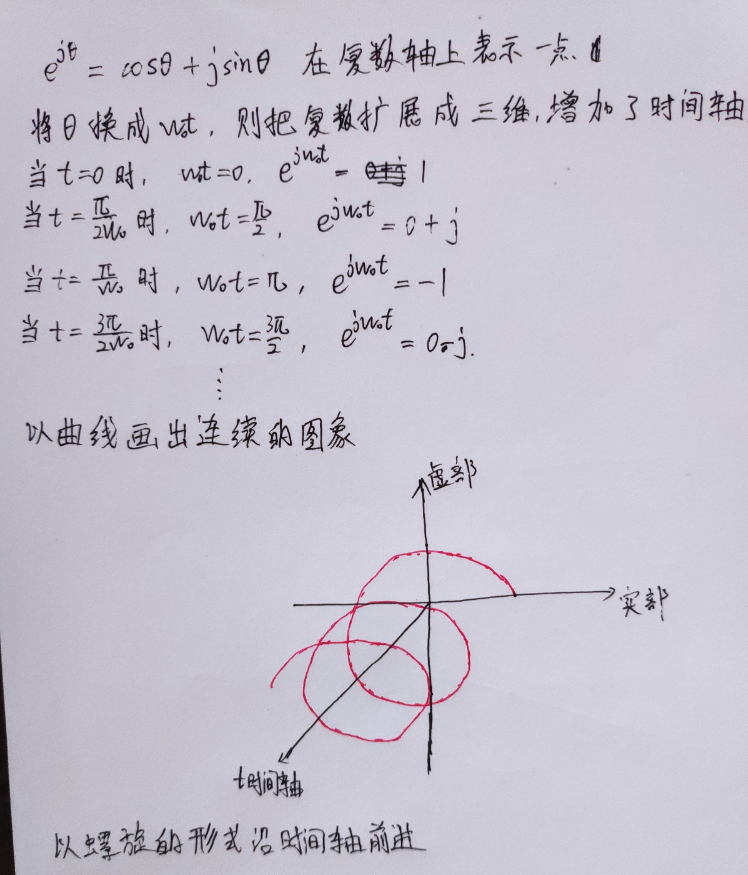 e^{jθ} = cosθ + jsinθ 在复数轴上表示一点.
将θ换成w₀t，则把复数扩展成三维，增加了时间轴
当 t=0 时, w₀t=0. e^{jw₀t} = 1
当 t=π/2w₀ 时, w₀t=π/2, e^{jw₀t} = 0+j
当 t=π/w₀ 时, w₀t=π, e^{jw₀t} = -1
当 t=3π/2w₀ 时, w₀t=3π/2, e^{jw₀t} = 0-j.
⋮
以曲线画出连续的图象
虚部
实部
t时间轴
以螺旋的形式沿时间轴前进